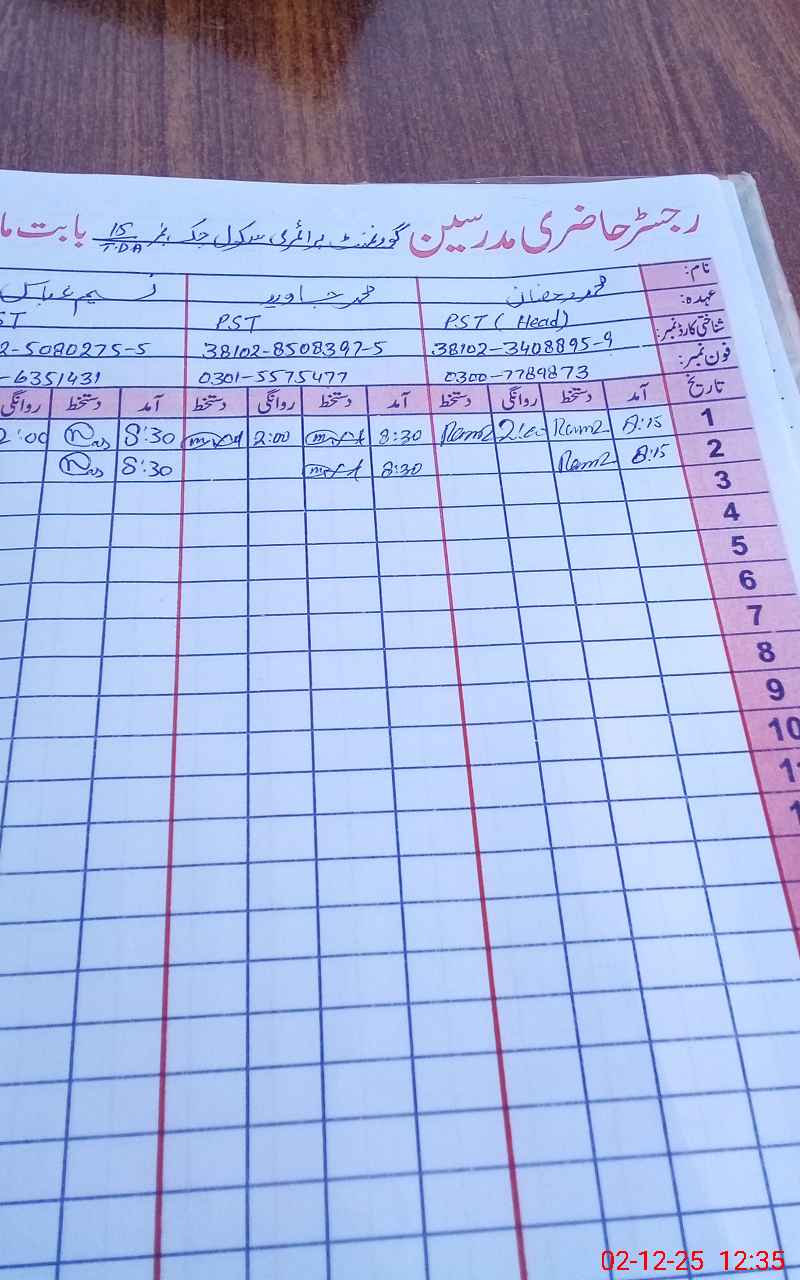 رجسٹر حاضری مدرسین گورنمنٹ پرائمری سکول چک نمبر 15/T.D.A بابت ما
نام: محمد رمضان محمد جاوید نسیم عباس
عہدہ: P.S.T (Head) P.S.T ST
شناختی کارڈ نمبر: 38102-3408895-9 38102-8508397-5 2-5080275-5
فون نمبر: 0300-7789873 0301-5575477 -6351431
تاریخ آمد دستخط روانگی دستخط آمد دستخط روانگی دستخط آمد دستخط روانگی
1 8:15 2:00 8:30 2:00 8:30 2:00
2 8:15 8:30 8:30
3
4
5
6
7
8
9
10
1
1
02-12-25 12:35